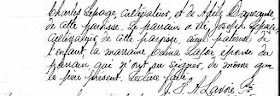 Charles Lepage, cultivateur, et de Adèle
de cette paroisse. Le parrain a été Joseph Lepage
cultivateur de cette paroisse, oncle paternel de
l'enfant la marraine Lavoie épouse du
parrain, qui n'ont pu signer, de même que
le père présent. Lecture faite.
J. A. Lavoie Ptre